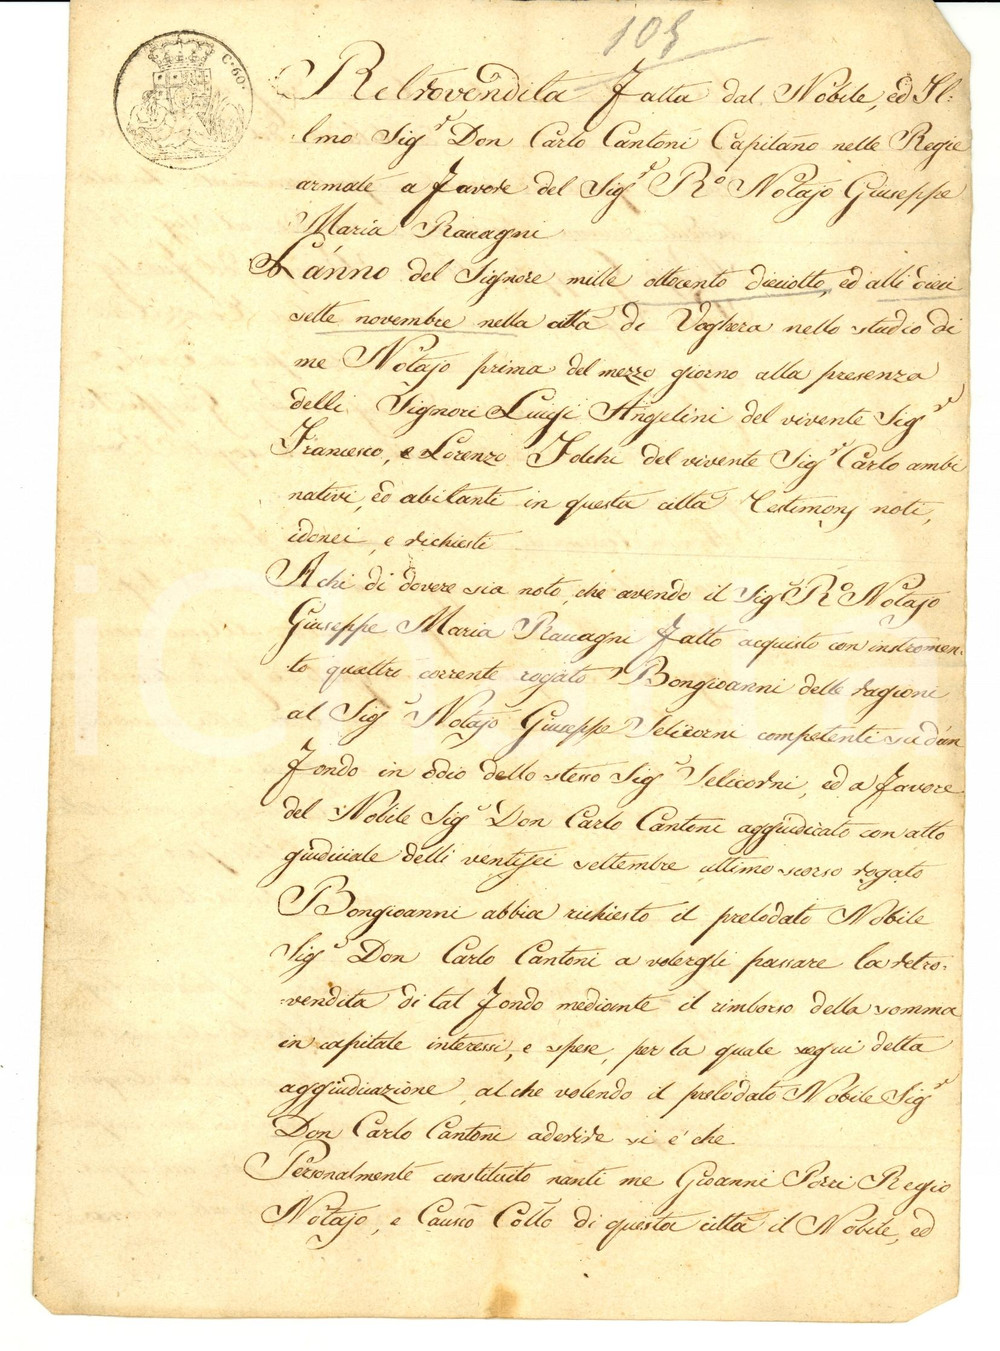 105
C. 60.
Retrovendita fatta dal Nobile, ed Il-
lmo Sigr Don Carlo Cantoni Capitano nelle Regie
armate a favore del Sigr Ro Notajo Giuseppe
Maria Ravagni
L'anno del Signore mille ottocento dieciotto, ed alli dieci
sette novembre nella città di Voghera nello studio di
me Notajo prima del mezzo giorno alla presenza
delli Signori Luigi Angelini del vivente Sigr
Francesco, e Lorenzo Folchi del vivente Sigr Carlo ambi
nativi, ed abitanti in questa città Testimonj noti,
idonei, e richiesti
A chi di dovere sia noto, che avendo il Sigr Ro Notajo
Giuseppe Maria Ravagni fatto acquisto con instromen-
to quattro corrente rogato Bongioanni delle ragioni
al Sigr Notajo Giuseppe Selicorni competenti su d'un
fondo in odio dello stesso Sigr Selicorni, ed a favore
del Nobile Sigr Don Carlo Cantoni aggiudicato con atto
giudiciale delli ventisei settembre ultimo scorso rogato
Bongioanni abbia richiesto il prelodato Nobile
Sigr Don Carlo Cantoni a volergli passare la retro-
-vendita di tal fondo mediante il rimborso della somma
in capitale interessi, e spese, per la quale seguì detta
aggiudicazione, al che volendo il prelodato Nobile Sigr
Don Carlo Cantoni aderire si è che
Personalmente constituito nanti me Gioanni Porri Regio
Notajo, e Causco Colto di questa città il Nobile, ed